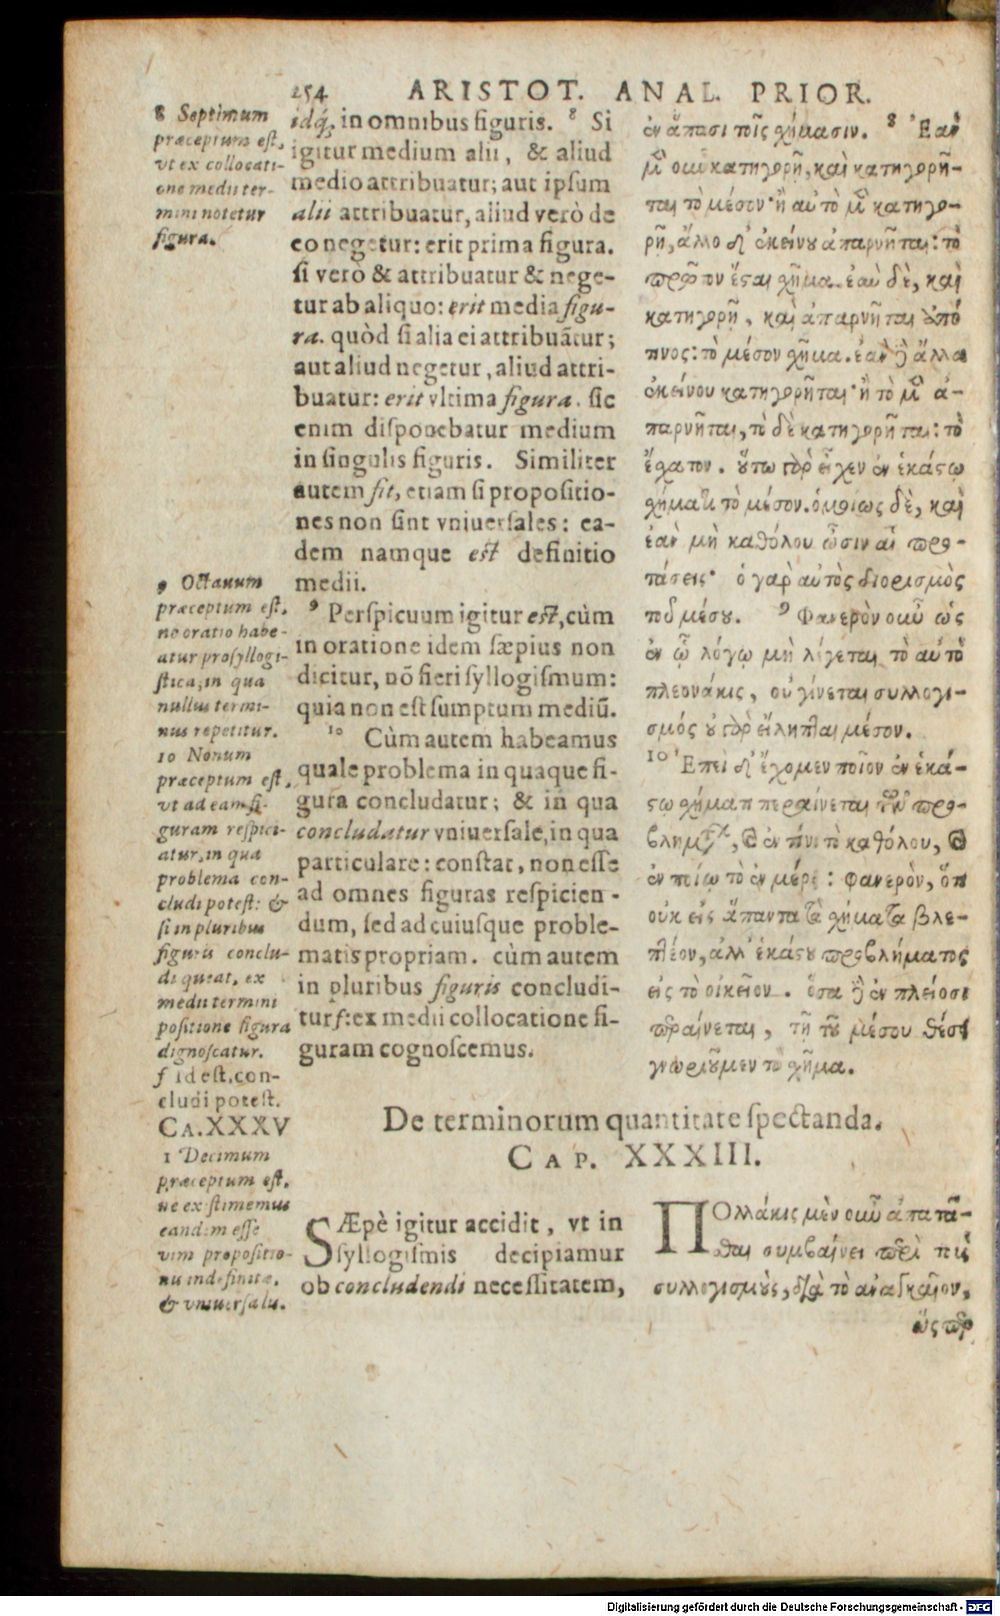 254 ARISTOT. ANAL. PRIOR.
8 Septimum
præceptum est,
vt ex collocati-
one medii ter-
mini notetur
figura.
9 Octauum
præceptum est,
ne oratio habe-
atur prosyllogi-
stica, in qua
nullus termi-
nus repetitur.
10 Nonum
præceptum est,
vt ad eam fi-
guram respici-
atur, in qua
problema con-
cludi potest: &
si in pluribus
figuris conclu-
di queat, ex
medii termini
positione figura
dignoscatur.
f id est, con-
cludi potest.
CA. XXXV
1 Decimum
præceptum est,
ne existimemus
eandem esse
vim propositio-
nis indefinitæ,
& vniuersalis.
idq́, in omnibus figuris. 8 Si
igitur medium alii, & aliud
medio attribuatur; aut ipsum
alii attribuatur, aliud verò de
eo negetur: erit prima figura.
si verò & attribuatur & nege-
tur ab aliquo: erit media figu-
ra. quòd si alia ei attribuãtur;
aut aliud negetur, aliud attri-
buatur: erit vltima figura. sic
enim disponebatur medium
in singulis figuris. Similiter
autem fit, etiam si propositio-
nes non sint vniuersales: ea-
dem namque est definitio
medii.
9 Perspicuum igitur est, cùm
in oratione idem sæpius non
dicitur, nõ fieri syllogismum:
quia non est sumptum mediũ.
10 Cùm autem habeamus
quale problema in quaque fi-
gura concludatur; & in qua
concludatur vniuersale, in qua
particulare: constat, non esse
ad omnes figuras respicien-
dum, sed ad cuiusque proble-
matis propriam. cùm autem
in pluribus figuris concludi-
tur f: ex medii collocatione fi-
guram cognoscemus.
ἐν ἅπασι τοῖς χήμασιν. 8 Ἐὰν
μὲν οὖν κατηγορῇ, καὶ κατηγορῆ-
ται τὸ μέσον· ἢ αὐτὸ μὲν κατηγο-
ρῇ, ἄλλο δ' ἐκείνου ἀπαρνῆται: τὸ
πρῶτον ἔσται χῆμα. ἐὰν δὲ, καὶ
κατηγορῇ, καὶ ἀπαρνῆται ἀπό
τινος: τὸ μέσον χῆμα. ἐὰν δὲ ἄλλα
ἐκείνου κατηγορῆται· ἢ τὸ μὲν ἀ-
παρνῆται, τὸ δὲ κατηγορῆται: τὸ
ἔχατον. οὕτω γὰρ εἶχεν ἐν ἑκάστῳ
χήματι τὸ μέσον. ὁμοίως δὲ, καὶ
ἐὰν μὴ καθόλου ὦσιν αἱ προ-
τάσεις· ὁ γὰρ αὐτὸς διορισμὸς
τοῦ μέσου. 9 Φανερὸν οὖν ὡς
ἐν ᾧ λόγῳ μὴ λέγεται τὸ αὐτὸ
πλεονάκις, οὐ γίνεται συλλογι-
σμός· οὐ γὰρ εἴληπται μέσον.
10 Ἐπεὶ δ' ἔχομεν ποῖον ἐν ἑκά-
στῳ χήματι περαίνεται τῶν προ-
βλημάτων, καὶ ἐν τίνι τὸ καθόλου, καὶ
ἐν ποίῳ τὸ ἐν μέρει: φανερὸν, ὅτι
οὐκ εἰς ἅπαντα τὰ χήματα βλε-
πτέον, ἀλλ' ἑκάστου προβλήματος
εἰς τὸ οἰκεῖον. ὅσα δὲ ἐν πλείοσι
περαίνεται, τῇ τοῦ μέσου θέσει
γνωριοῦμεν τὸ χῆμα.
De terminorum quantitate spectanda.
CAP. XXXIII.
SÆpè igitur accidit, vt in
syllogismis decipiamur
ob concludendi necessitatem,
ΠΟλλάκις μὲν οὖν ἀπατᾶ-
θαι συμβαίνει περὶ τοὺς
συλλογισμοὺς, διὰ τὸ ἀναγκαῖον,
ὥσπερ
Digitalisierung gefördert durch die Deutsche Forschungsgemeinschaft - DFG